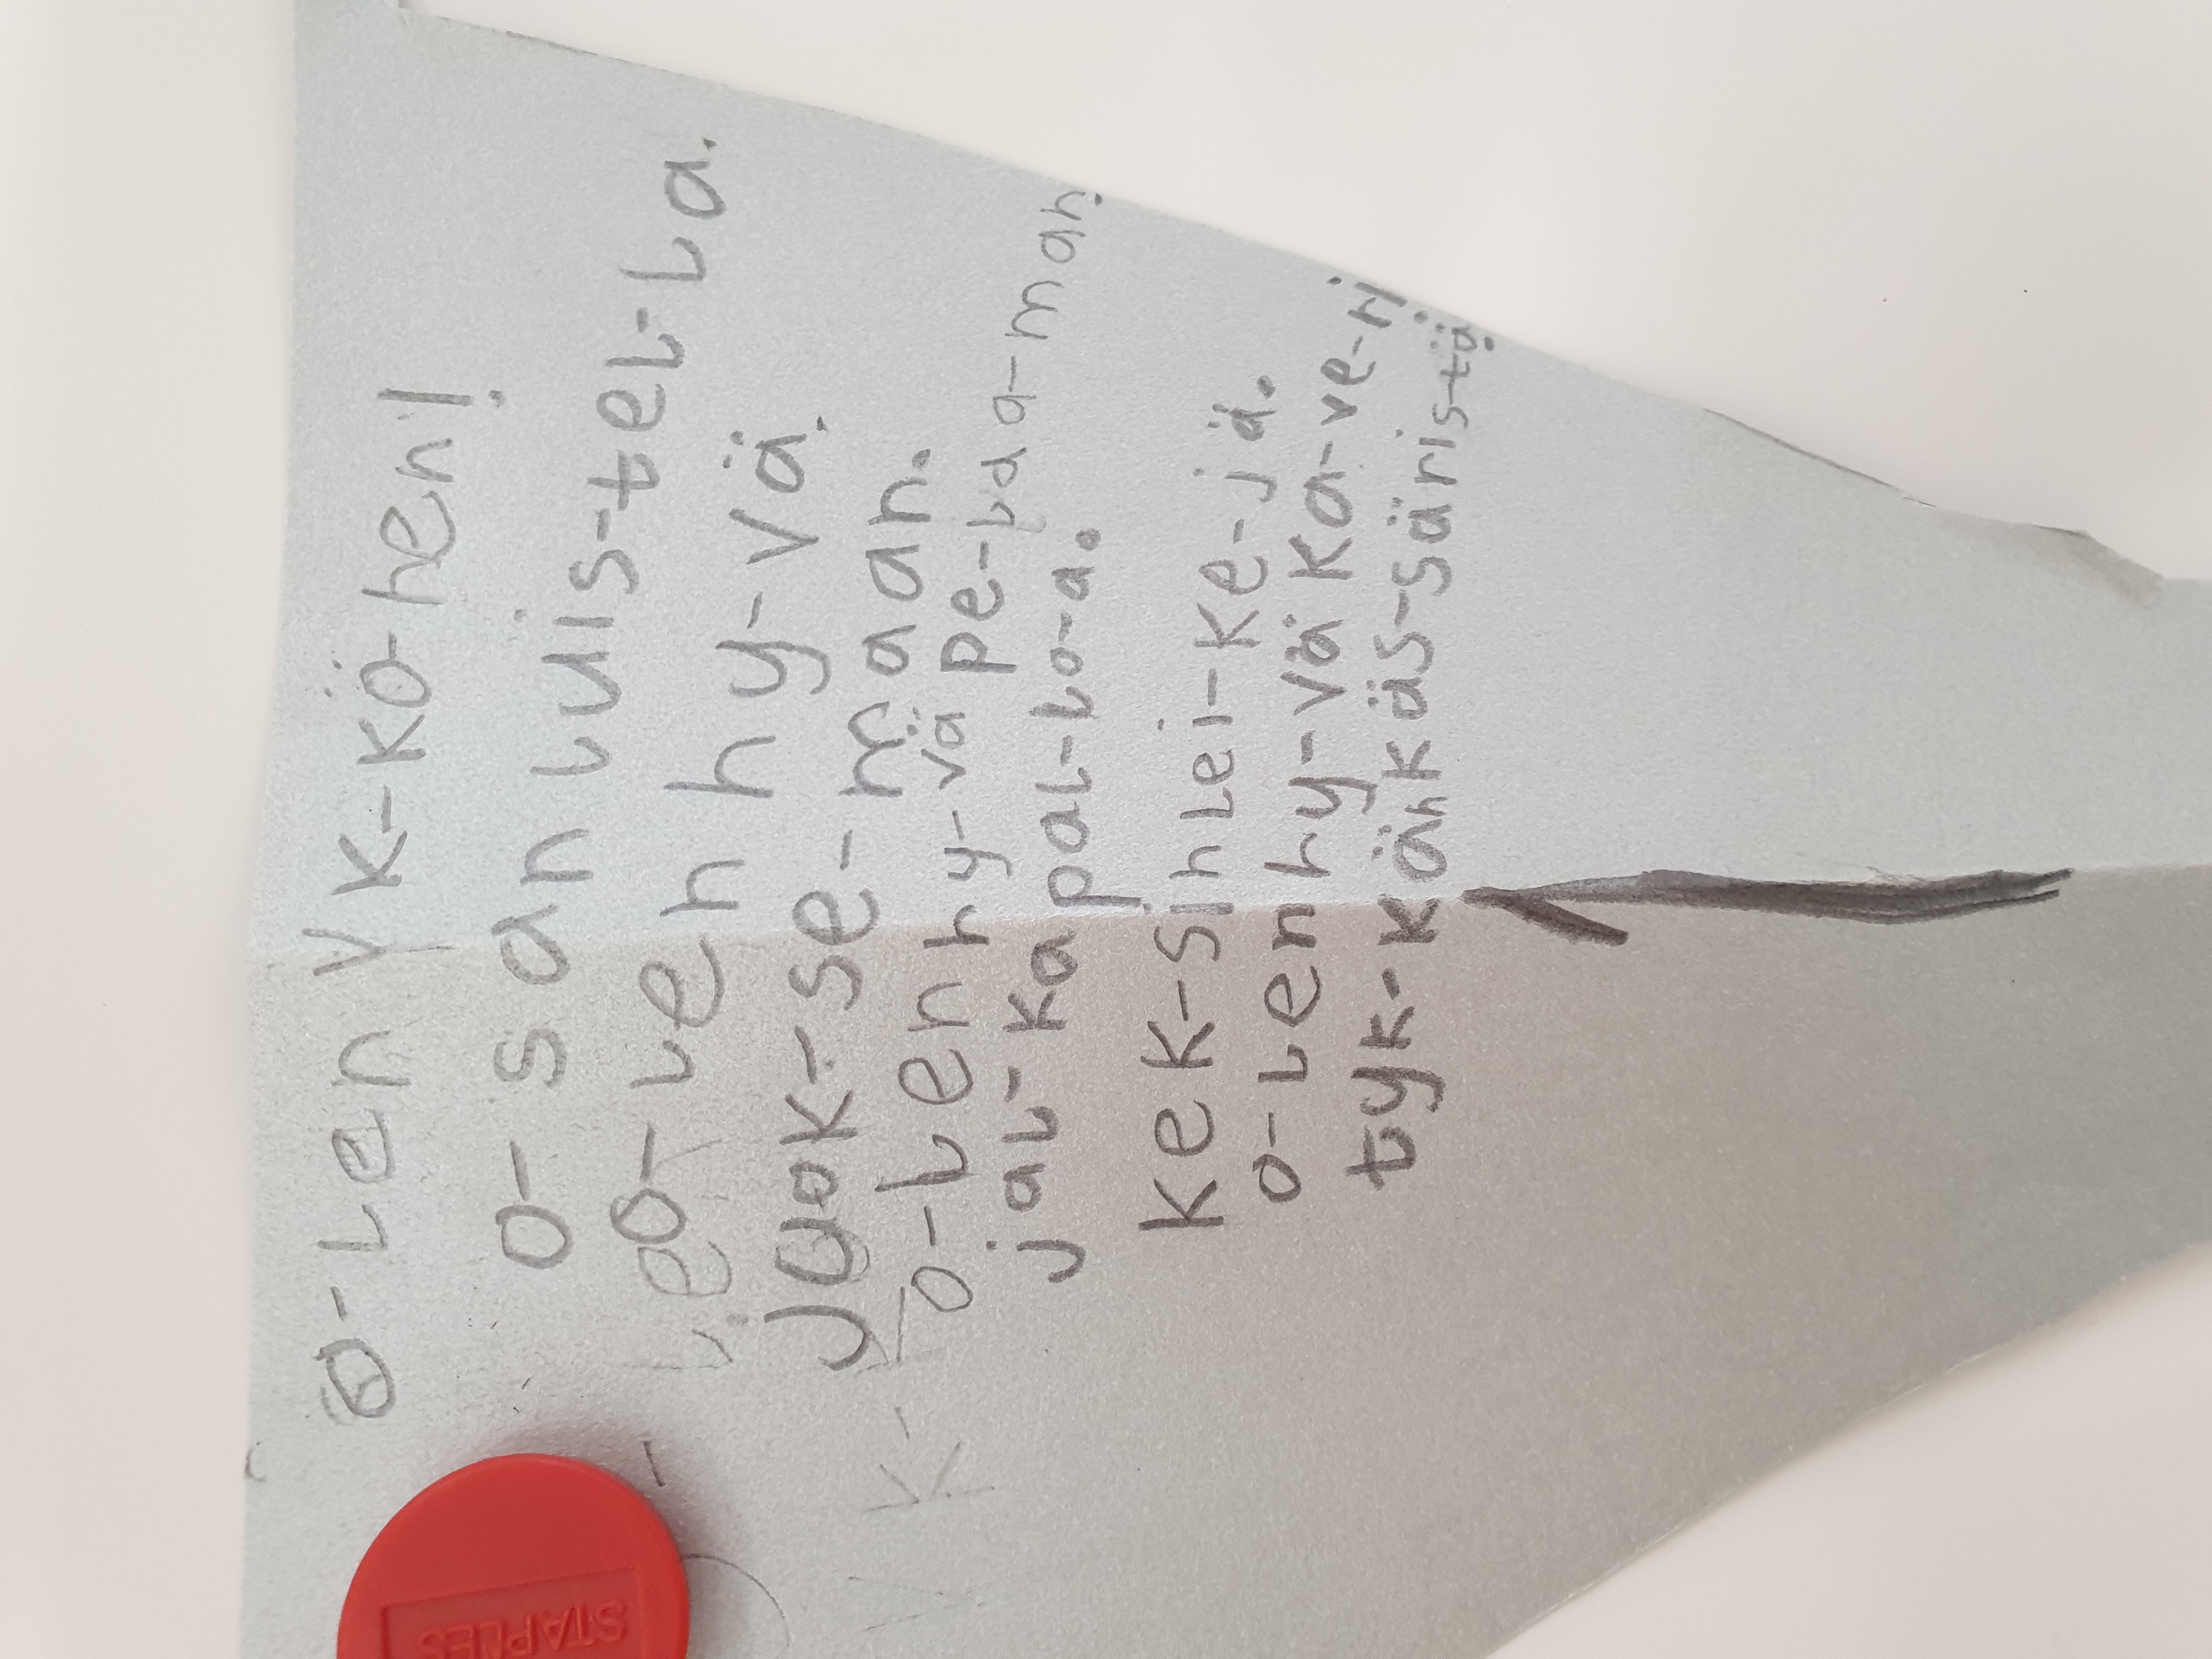 o-Len YK-Kö-nen!
o-san Luis-teL-La.
o-Len hy-vä
juok-se-maan.
o-Len hy-vä pe-Laa-man
jaL-Kapal-Lo-a.
KeK-sin Lei-Ke-jä.
o-Len hy-vä Ka-ve-ri.
tyk-Kään käs-säristä.
STAPLES